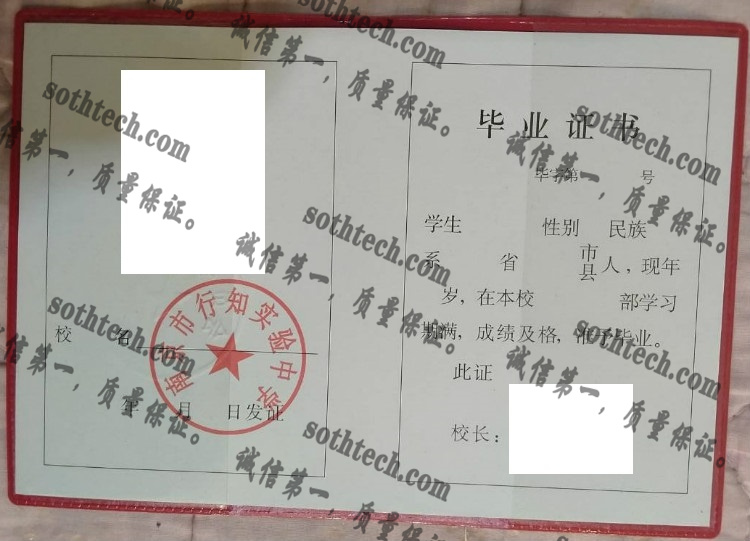 毕业证书
毕字第 号
学生 性别 民族
系 省 市县 人，现年
岁，在本校 部学习
期满，成绩及格，准予毕业。
此证
校长：
南京市行知实验中学
校 名
年 月 日发证
sothtech.com
诚信第一，质量保证。
sothtech.com
诚信第一，质量保证。
sothtech.com
诚信第一，质量保证。
sothtech.com
诚信第一，质量保证。
sothtech.com
诚信第一，质量保证。
sothtech.com
诚信第一，质量保证。
sothtech.com
诚信第一，质量保证。